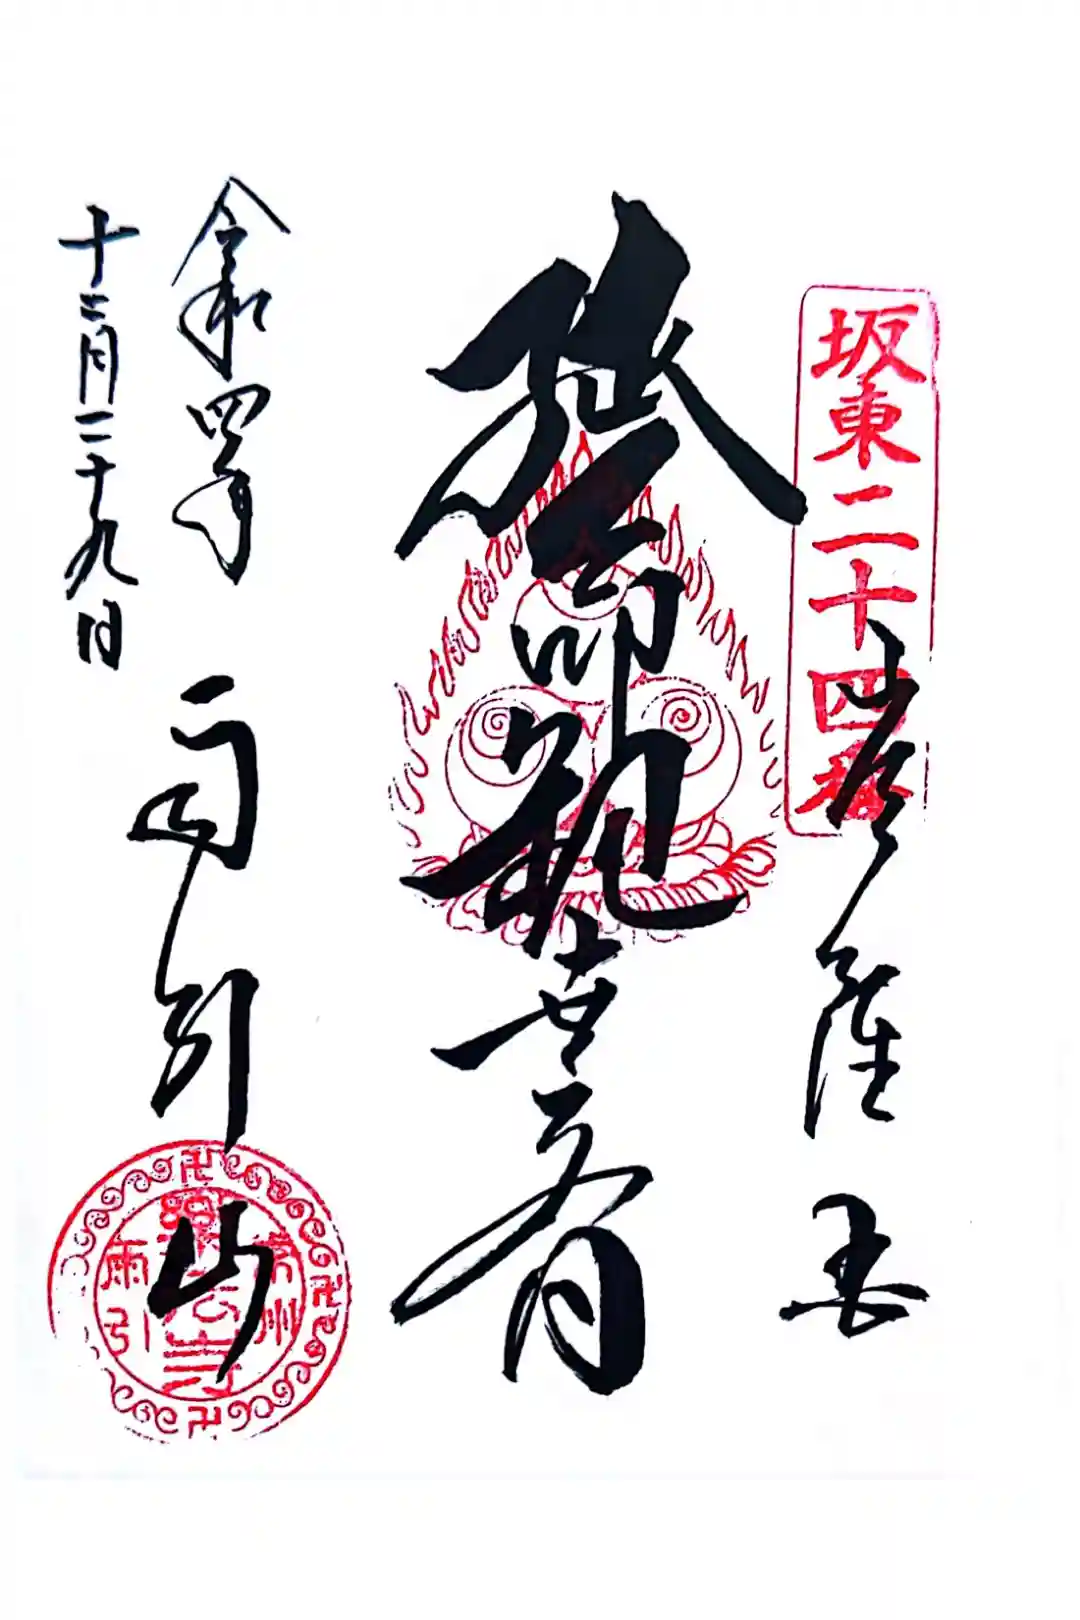 坂東二十四番
延命観世音
令和四年
十二月二十九日
雨引山
常州
樂法寺
雨引